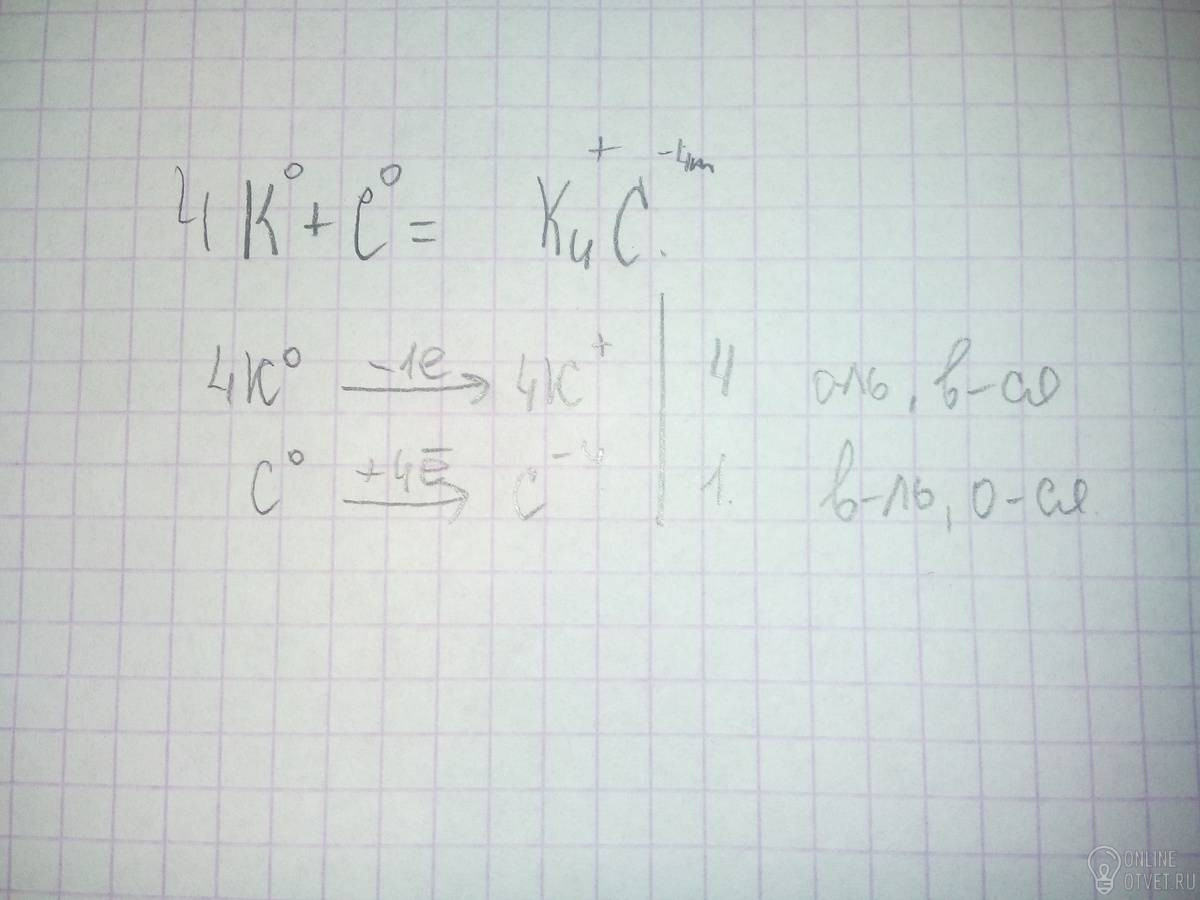 4K⁰ + C⁰ = K₄⁺C⁻⁴
4K⁰ —-1e→ 4K⁺ | 4 о-ль, в-ся
C⁰ —+4ē→ C⁻⁴ | 1. в-ль, о-ся.
ONLINE
OTVET.RU